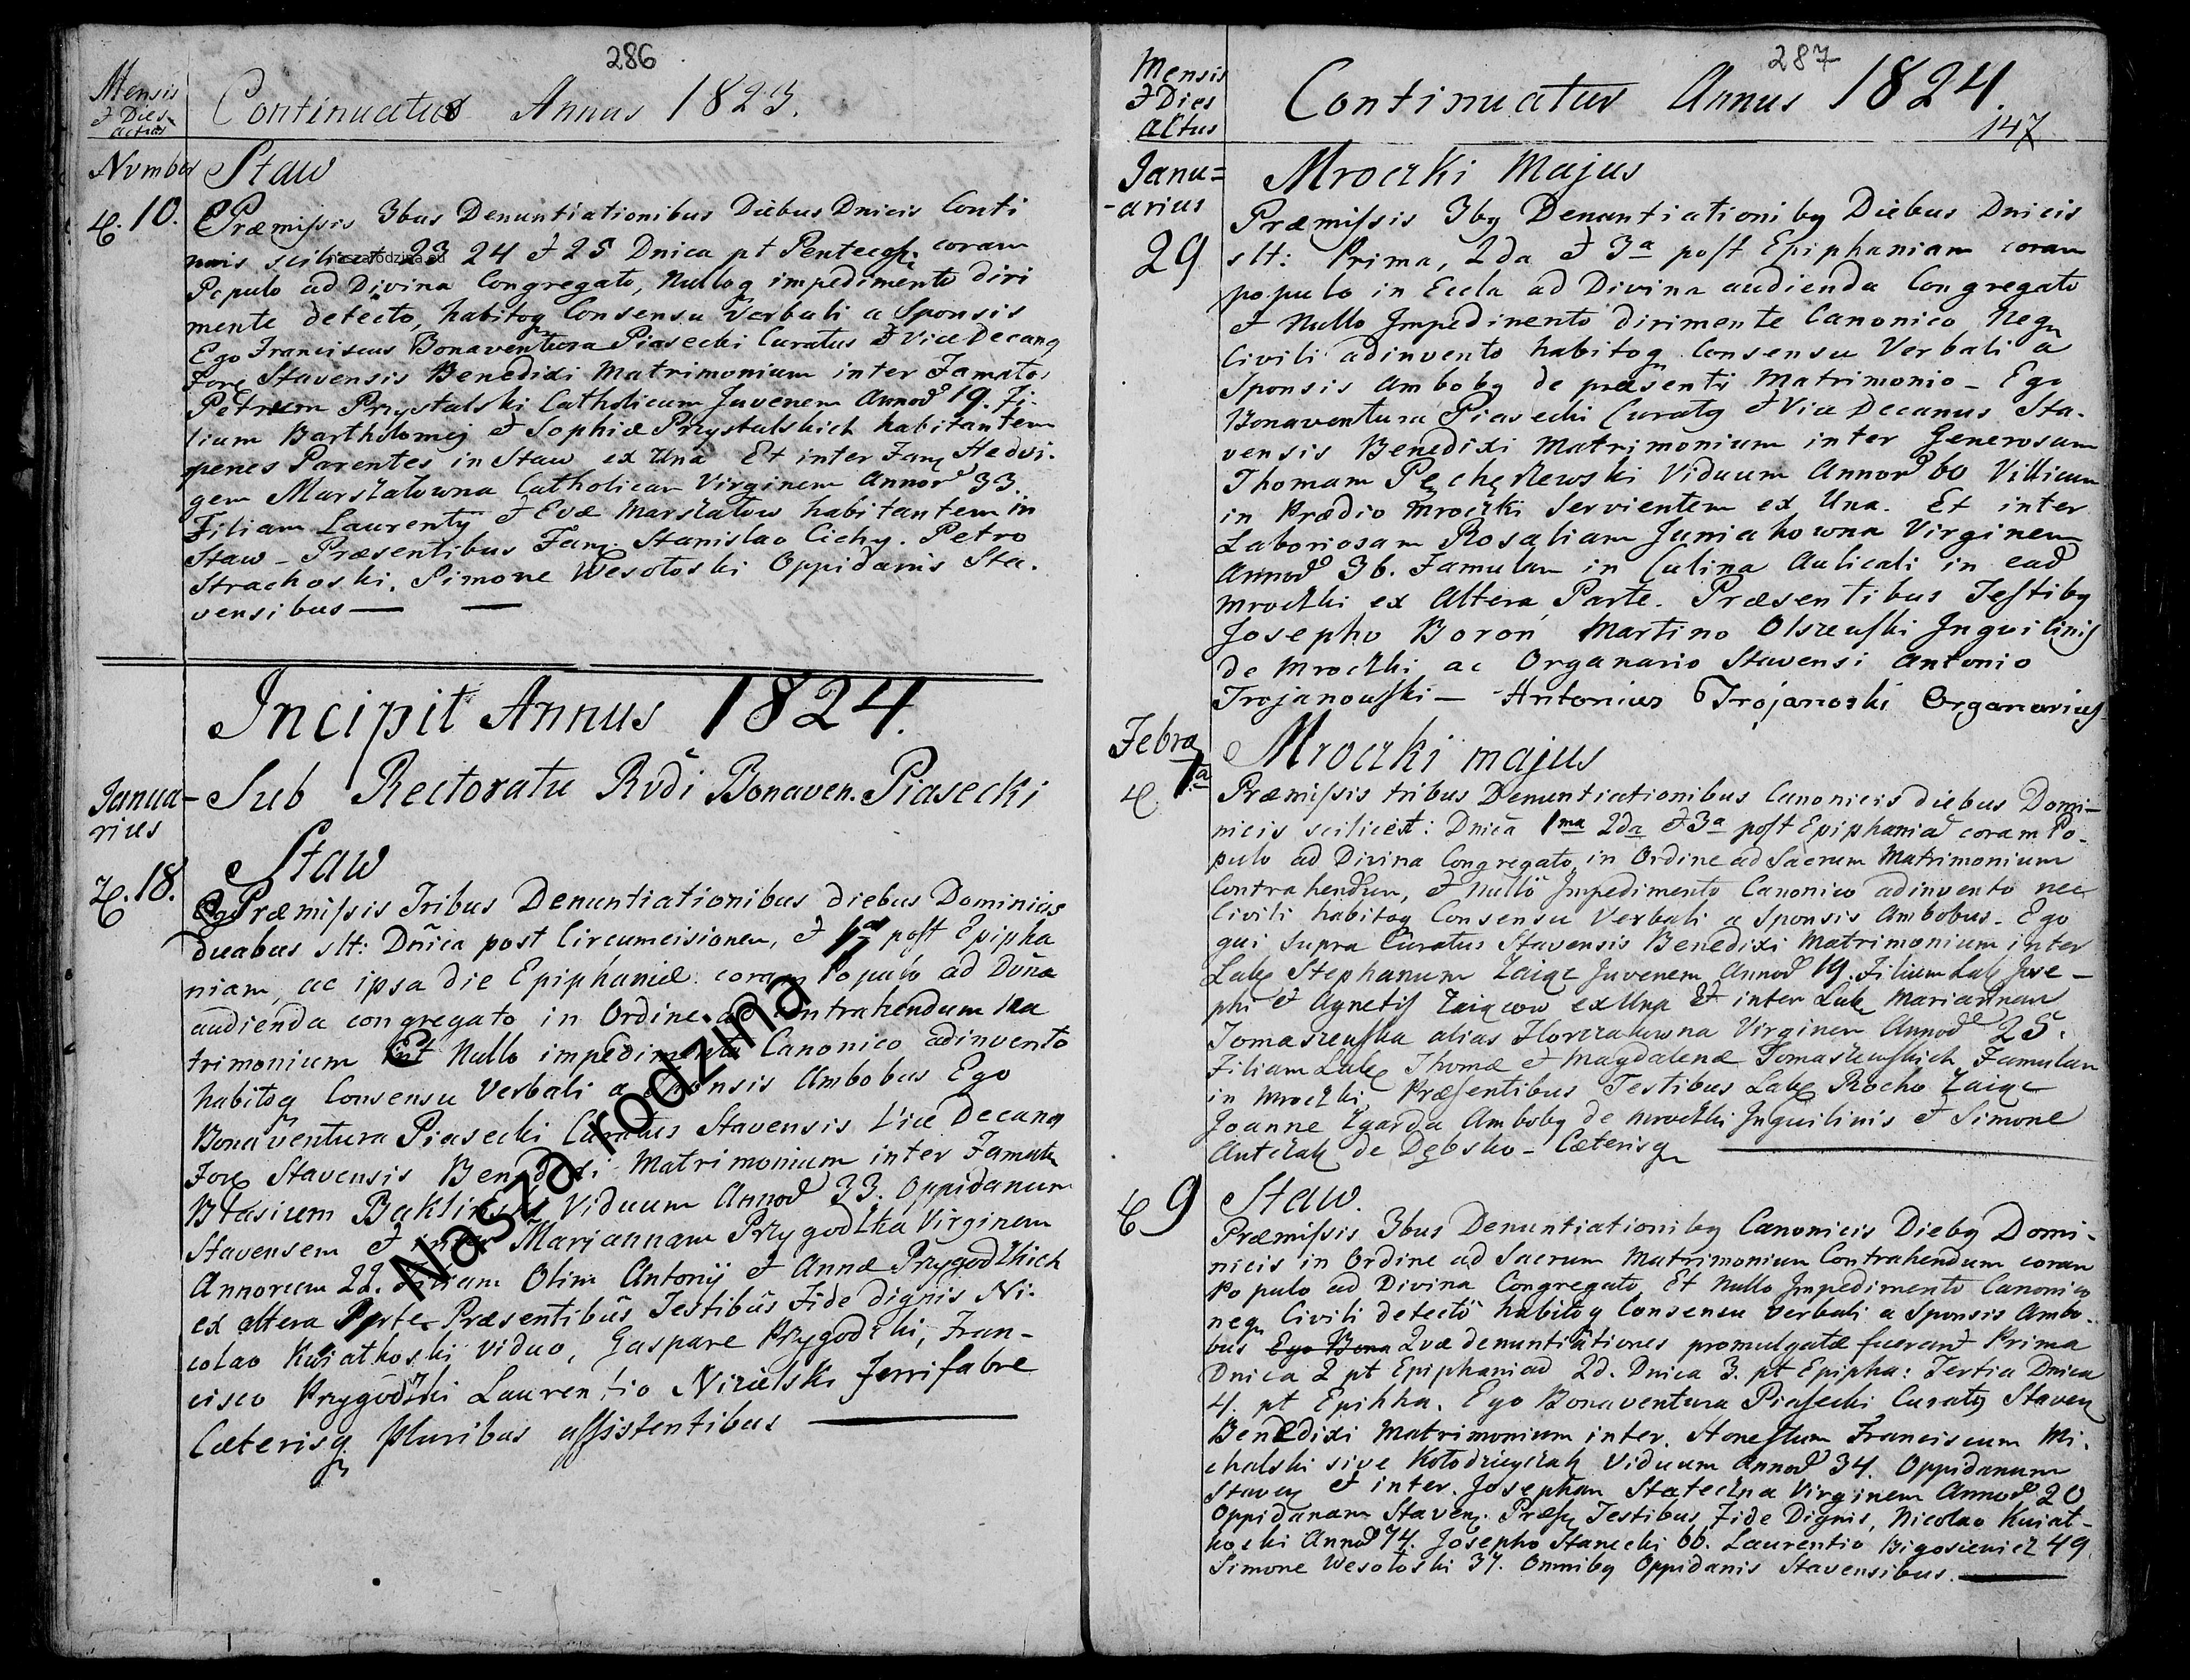 286
Mensis
& Dies
actus
Continuatus Annus 1823.
Number
Staw
10.
Præmissis 3bus Denuntiationibus Diebus Dnicis Conti
nuis scilicet 23 24 & 25 Dnica pt Pentecost: coram
naszarodzina.eu
Populo ad Divina Congregato, Nulloq impedimento diri
mente detecto, habitoq Consensu Verbali a Sponsis
Ego Franciscus Bonaventura Piasecki Curatus & ViceDecanq
Stavensis Benedixi Matrimonium inter Famato:
Petrum Przystalski Catholicum Juvenem Annoꝝ 19. Fi-
lium Bartholomej & Sophiæ Przystalskich habitantem
penes Parentes in Staw ex Una Et inter Fam Hedvi-
gem Marszałowna Catholicam Virginem Annoꝝ 33.
Filiam Laurenty & Evæ Marszałow habitantem in
Staw - Præsentibus Fam. Stanislao Cichy. Petro
Strachoski, Simone Wesołoski Oppidanis Sta-
vensibus
Incipit Annus 1824.
Sub Rectoratu Rvdi Bonaven. Piasecki
Janua-
rius
Staw
18.
Præmissis Tribus Denuntiationibus diebus Dominicis
duabus slt: Dnica post Circumcisionem, & 1a post Epipha
niam, ac ipsa die Epiphaniæ coram Populo ad Divina
audienda congregato in Ordine ad contrahendum Ma
trimonium Et Nullo impedimento Canonico adinvento
habitoq Consensu Verbali a Sponsis Ambobus Ego
Bonaventura Piasecki Curatus Stavensis Vice Decanq
Stavensis Benedixi Matrimonium inter Famat
Blasium Viduum Annoꝝ 33. Oppidanum
Stavensem & inter Marjannam Przygodzka Virginem
Annorum 22. Filiam Olim Antonij & Annæ Przygodzkich
ex altera Parte Præsentibus Testibus Fide dignis Ni-
colao Kwiatkoski Viduo, Gaspare Przygodzki, Fran-
cisco Przygodzki Laurentio Nizielski ferrifabre
Cæterisq pluribus assistentibus
Nasza rodzina
287
Mensis
& Dies
actus
Continuatur Annus 1824.
147
Janu=
-arius
29
Mroczki Majus
Præmissis 3bq Denuntiationibq Diebus Dnicis
slt: Prima, 2da & 3a post Epiphaniam coram
populo in Eccla ad Divina audienda Congregato
& Nullo Impedimento dirimente Canonico, Neq
Civili adinvento habitoq Consensu Verbali a
Sponsis Ambobq de præsenti Matrimonio - Ego
Bonaventura Piasecki Curatq & Vice Decanus Sta-
vensis Benedixi Matrimonium inter Generosum
Thomam Pęchęrzewski Viduum Annoꝝ 60 Villicum
in Prædio Mroczki Servientem ex Una. Et inter
Laboriosam Rosaliam Juniakowna Virginem
Annoꝝ 36. Famulam in Culina Aulicali in ead
Mroczki ex Altera Parte. Præsentibus Testibq
Josepho Boroń Martino Olszewski Inquilinis
de Mroczki ac Organario Stavensi Antonio
Trojanowski — Antonius Trojanoski Organarius
Febra
1a
Mroczki majus
Præmissis tribus Denuntiationibus Canonicis diebus Domi-
nicis scilicet: Dnica 1ma 2da & 3a post Epiphaniaꝝ coram Po-
pulo ad Divina Congregato, in Ordine ad Sacrum Matrimonium
Contrahendum, & nullo Impedimento Canonico adinvento nec
Civili habitoq Consensu Verbali a Sponsis Ambobus - Ego
qui supra Curatus Stavensis Benedixi Matrimonium inter
Lab Stephanum Zaiąc Juvenem Annoꝝ 19. Filium Lab Jose-
phi & Agnetis Zaiącow ex Una & inter Lab Mariannam
Tomaszewska alias Florczakowna Virginem Annoꝝ 25.
Filiam Lab Thomæ & Magdalenæ Tomaszewskich Famulam
in Mroczki Præsentibus Testibus Lab Rocho Zaiąc
Joanne Zgarda Ambobq de Mroczki Inquilinis & Simone
Antczak de Dębsko - Cæterisq
9
Staw.
Præmissis 3bus Denuntiationibq Canonicis Diebq Domi-
nicis in Ordine ad Sacrum Matrimonium Contrahendum coram
Populo ad Divina Congregato, Et Nullo Impedimento Canonico
neq Civili detecto habitoq Consensu Verbali a Sponsis Ambo-
bus Ego Bona Quæ denuntiationes promulgatæ fuerant Prima
Dnica 2 pt Epiphaniaꝝ 2d. Dnica 3. pt Epipha: Tertia Dnica
4. pt Epipha. Ego Bonaventura Piasecki Curatq Staven
Benedixi Matrimonium inter. Honestum Franciscum Mi-
chalski sive Kołodzieyczak Viduum Annoꝝ 34. Oppidanum
Staven & inter. Josepham Stateczna Virginem Annoꝝ 20
Oppidanam Staven. Præs Testibus Fide Dignis, Nicolao Kwiat-
koski Annoꝝ 74. Josepho Stanecki 66. Laurentio Bigosiewicz 49.
Simone Wesołoski 37. Omnibq Oppidanis Stavensibus.